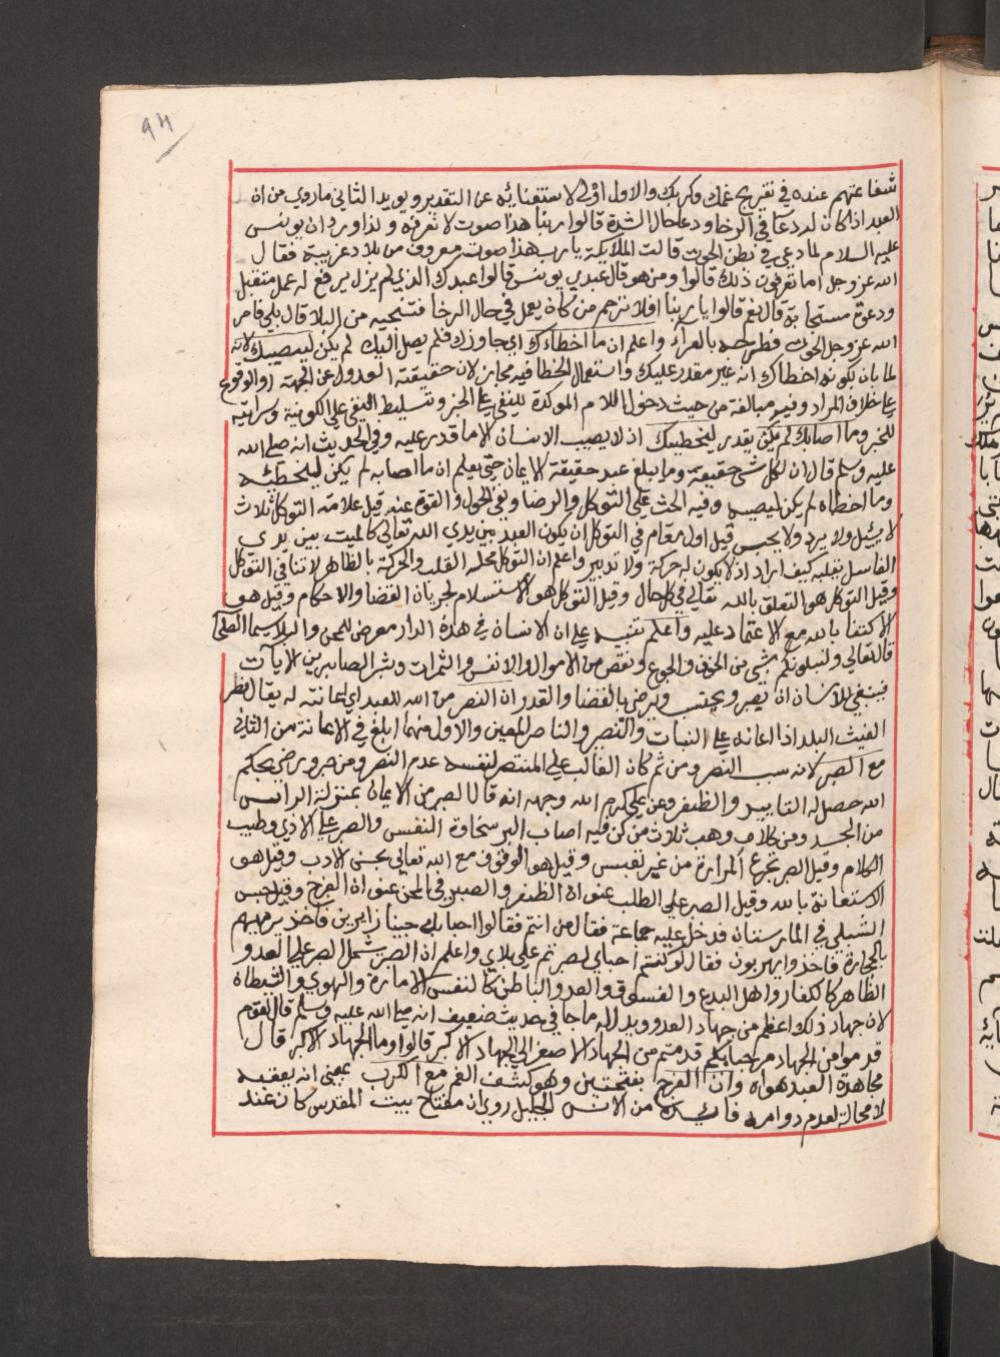 94
شفاعتهم عنده في تفريج غمك وكربك والاول اولى لاستغنائه عن التقدير ويويد الثاني ماروي من ان
العبد اذا كان له دعا في الرخا ودعا حال الشدة قالوا ربنا هذا صوت لا نعرفه ولذا ورد ان يونس
عليه السلام لما دعي في بطن الحوت قالت الملايكة يارب هذا صوت معروف من بلاد غريبة فقال
الله عز وجل اما تعرفون ذلك قالوا ومن هو قال عبدي يونس قالوا عبدك الذي لم يزل يرفع له عمل متقبل
ودعوة مستجابة قال نعم قالوا يا ربنا افلا ترحم من كان يعمل في حال الرخا فتنجيه من البلا قال بلي فامر
الله عز وجل الحوت فطرحه بالعراء واعلم ان ما اخطاءك اي جاوزك فلم يصل اليك لم يكن ليصيبك لانه
لما بان بكونه اخطاك انه غير مقدر عليك واستعمال الخطا فيه مجاز لان حقيقته العدول عن الجهة او الوقوع
علي خلاف المراد وفيه مبالغة من حيث دخول اللام الموكدة للنفي علي الخبر وتسليط النفي علي الكونية وسرايته
للخبر وما اصابك لم يكن يقدر ليخطيك اذ لا يصيب الانسان الا ما قدر عليه وفي الحديث انه صلي الله
عليه وسلم قال ان لكل شي حقيقة وما بلغ عبد حقيقة الايمان حتي يعلم ان ما اصابه لم يكن ليخطئه
وما اخطاه لم يكن ليصيبه وفيه الحث علي التوكل والرضا ونفي الحول والقوة عنه قيل علامة التوكل ثلاث
لا يسئل ولا يرد ولا يحبس قيل اول مقام في التوكل ان يكون العبد بين يدي الله تعالي كالميت بين يدي
الغاسل يقلبه كيف اراد اذ لا يكون له حركة ولا تدبير واعلم ان التوكل محله القلب والحركة بالظاهر لا تنافي التوكل
وقيل التوكل هو التعلق بالله تعالي في كل حال وقيل التوكل هو الاستسلام لجريان القضا والاحكام وقيل هو
الاكتفا بالله مع الاعتماد عليه واعلم تنبيه علي ان الانسان في هذه الدار معرض للمحن والبلا سيما الصلحا
قال تعالي ولنبلونكم بشي من الخوف والجوع ونقص من الاموال والانفس والثمرات وبشر الصابرين الايات
فينبغي للانسان ان يصبر ويحتسب ويرضي بالقضا والقدر ان النصر من الله للعبد اي اعانته له يقال نصر
الغيث البلد اذا اعانه علي النبات والنصر والناصر المعين والاول منهما ابلغ في الاعانة من الثاني
مع الصبر لانه سبب النصر ومن ثم كان الغالب علي المنتصر لنفسه عدم النصر ومن صبر ورضي بحكم
الله حصل له التاييد والظفر وعن علي كرم الله وجهه انه قال الصبر من الايمان بمنزلة الراس
من الجسد ومن كلام وهب ثلاث من كن فيه اصاب البر سخاوة النفس والصبر علي الاذي وطيب
الكلام وقيل الصبر تجرع المرارة من غير تعبيس وقيل هو الوقوف مع الله تعالي بحسن الادب وقيل هو
الاستعانة بالله وقيل الصبر علي الطلب عنوان الظفر والصبر في المحن عنوان الفرج وقيل حبس
الشبلي في المارستان فدخل عليه جماعة فقال من انتم فقالوا احبابك جينا زايرين فاخذ يرميهم
بالحجارة فاخذوا يهربون فقال لو كنتم احباي لصبرتم علي بلاي واعلم ان الصبر يشمل الصبر علي العدو
الظاهر كالكفار واهل البدع والفسوق والعدو الباطن كالنفس الامارة والهوي والشيطان
لان جهاد ذلك اعظم من جهاد العدو ويدل له ما جا في حديث ضعيف انه صلي الله عليه وسلم قال لقوم
قدموا من الجهاد مرحبا بكم قدمتم من الجهاد الاصغر الي الجهاد الاكبر قالوا وما الجهاد الاكبر قال
مجاهدة العبد هواه وان الفرج بفتحتين وهو كشف الغم مع الكرب بمعني انه يعقبه
لا محالة لعدم دوامه فايدة من الانس الجليل روي ان مفتاح بيت المقدس كان عند